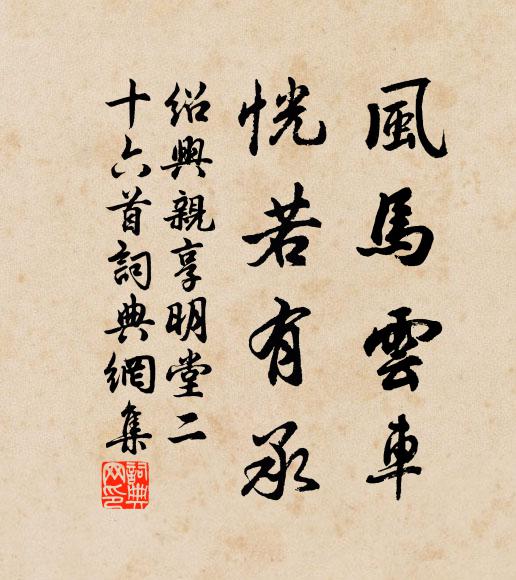 風馬雲車
恍若有承
紹興親享明堂二
十六首詞典網集
詞典網印